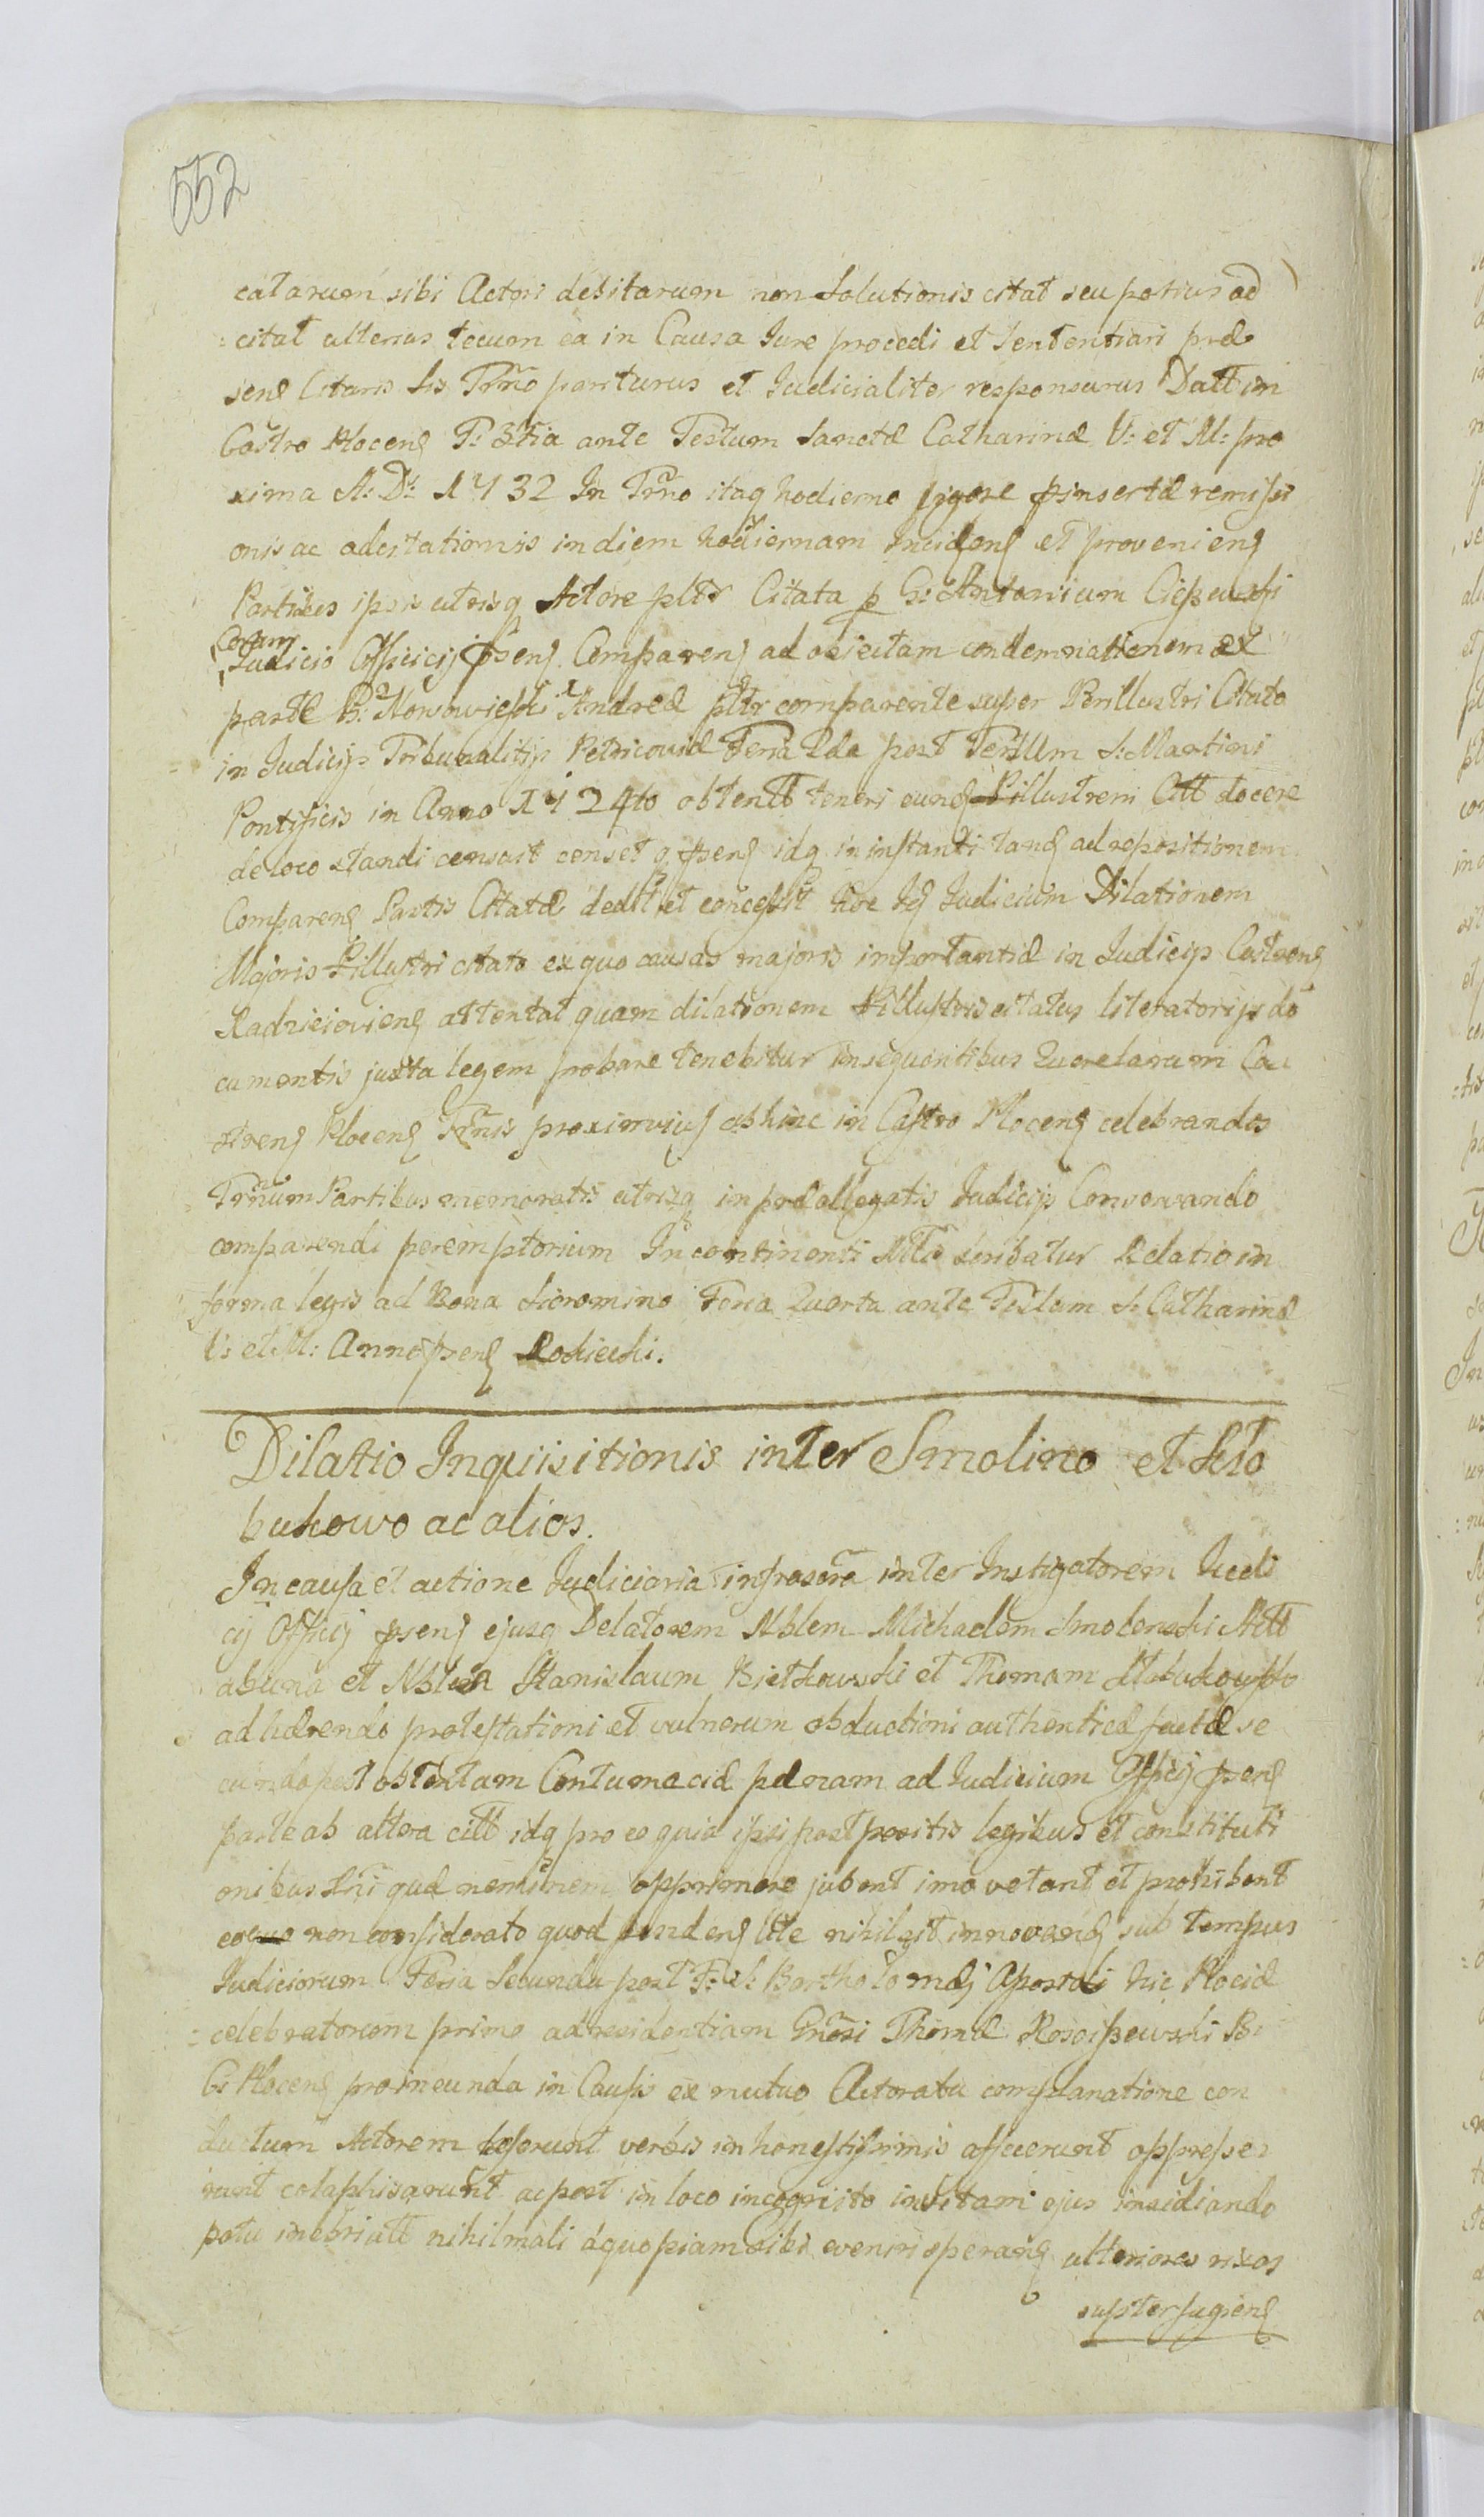 552
catarum sibi Actori debitarum non Solutionis citat seu potius ad
citat alterius tecum ea in Causa Jure procedi et Sententiari præ
senς Citaris sis Trño pariturus et Judicialiter responsurus Datt im
Castro Plocenς F: 3tia ante Festum Sanctæ Catharinæ V: et M: pro
xima A: D: 1732 In Trño itaq hodierno vigore pinsertæ remissi
onis ac adcitationis in diem hodiernam Incidenς et provenienς
Partibus ipsis utrisq Actore pltr Citata p G: Antonium Cissewski
Coram
Judicio Officij psenς Comparenς ad obiectam condemnationem ex
parte G: Nowowieski Andreæ pltr comparente super Perillustri Citato
in Judicijs Tribunalitijs Petricoviæ Feria 2da post Festum S: Martini
Pontificis in Anno 1724to obtent teneri eunς Pillustrem Citt docere
de loco standi censuit censet q psenς idq in instanti tanς ad repositionem
Comparenς Partis Citatæ dedit et concessit hoc Iς Judicium Dilationem
Majoris Pillustri citato ex quo causas majoris importantiæ in Judicijs Castrenς
Radziejovienς attentat quam dilationem Pillustris citatus literatorijs do
cumentis juxta legem probare tenebitur insequentibus Querelarum Ca
strenς Plocenς Trñis proximivis abhinc in Castro Plocenς celebrandis
Trñum Partibus memoratis utrisq in præallegatis Judicijs Conservando
comparendi peremptorium Incontinenti Nila scribatur Relatio in
forma legis ad Bona Skoromino Feria Quarta ante Festum S: Catharinæ
V: et M: Anno psenς Rokicki.
Dilatio Inquisitionis inter Smolino et Kło
bukowo ac alios.
In causa et actione Judiciaria infrascra inter Instigatorem Judi
cij Officij psenς ejusq Delatorem Nblem Michaelem Smolenski Actt
ab una et Nbles Stanislaum Bietkowski et Thomam Kłobukowski
adhærendo protestationi et vulnerum obductioni authenticæ factæ se
cundo post obtentam Contumaciæ pænam ad Judicium Officij psenς
parte ab altera citt idq pro eo quia ipsi postpositis legibus et constituti
onibus Rñi quæ neminem opprimere jubent imo vetant et prohibent
eoque non considerato quod pendenς lite nihil sit innovanς sub tempus
Judiciorum Feria Secunda post F: S: Bartholomæj Apostoli hic Plociæ
celebratorum primo ad residentiam Gñosi Thomæ Rosciszewski B:
G: Plocenς pro ineunda in Causis ex mutuo Actoratu complanatione con
ductum Actorem læserunt verbis inhonestissimis affecerunt oppresse
runt colaphisarunt ac post in loco incognito invitam ejus insidiando
potu inebriatt nihil mali á quopiam sibi eveniri speranς ulteriores rixas
supterfugienς